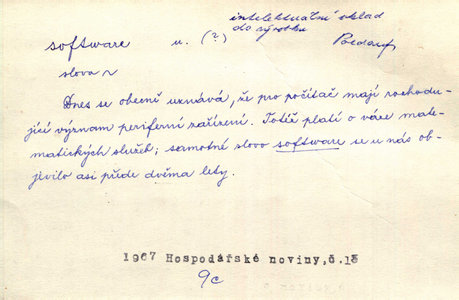 intelektuální vklad
software u. (?) do výrobku
slova
Dnes se obecně uznává, že pro počítač mají rozhodu-
jící význam periferní zařízení. Totéž platí o váze mate-
matických služeb; samotné slovo software se u nás ob-
jevilo asi přede dvěma lety.
1967 Hospodářské noviny,č.18
9c